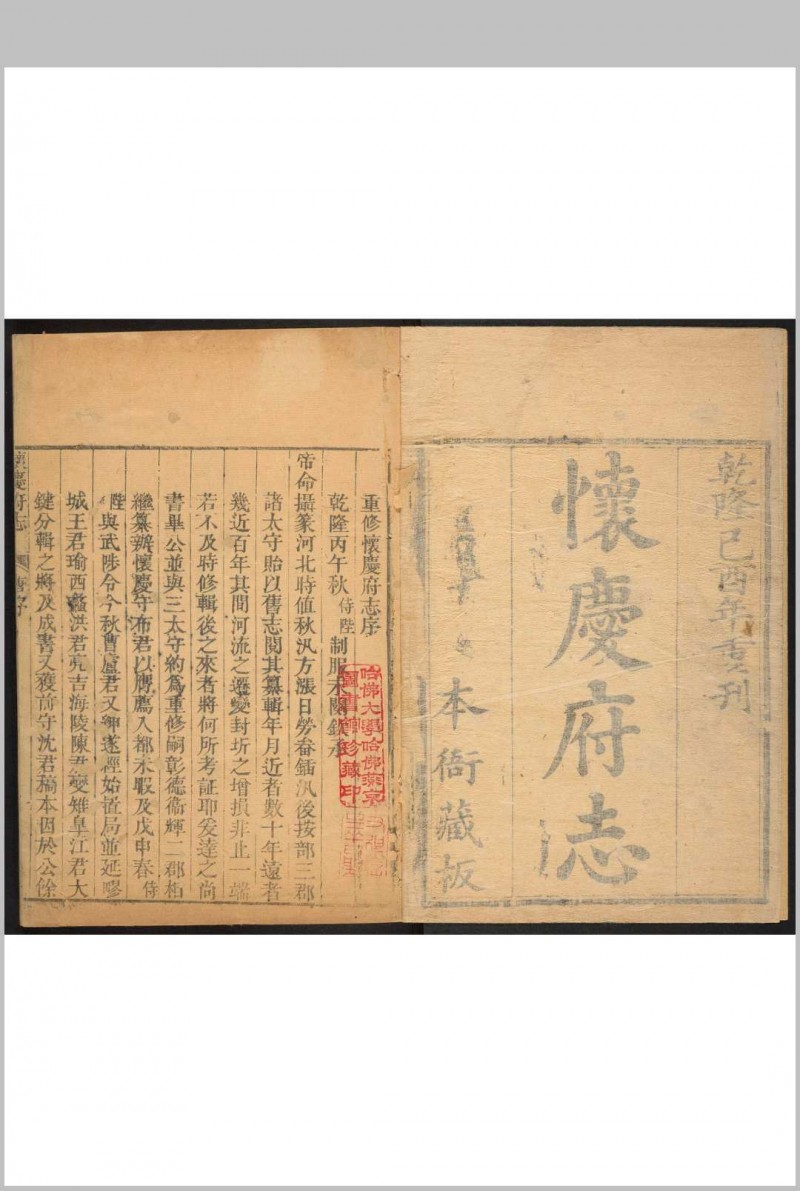 乾隆己酉年重刊
懷慶府志
本衙藏板
重修懷慶府志序
乾隆丙午秋侍陛制服未闋欽承
帝命攝篆河北時值秋汛方漲日勞畚鍤汛後按部三郡
諸太守貽以舊志閱其纂輯年月近者數十年遠者
幾近百年其間河流之遷變封圻之增損非止一端
若不及時修輯後之來者將何所考証耶爰達之尚
書畢公並與三太守約為重修嗣彰德衛輝二郡相
繼纂辦懷慶守布君以膺薦入都未暇及戊申春侍
陛與武陟令今秋曹盧君又紳遂經始置局並延膠
城王君瑜西蠡洪君亮吉海陵陳君燮雉皋江君大
鍵分輯之將及成書又獲前守沈君稿本因於公餘
懷慶府志
序
哈佛大學哈佛燕京
圖書館珍藏印